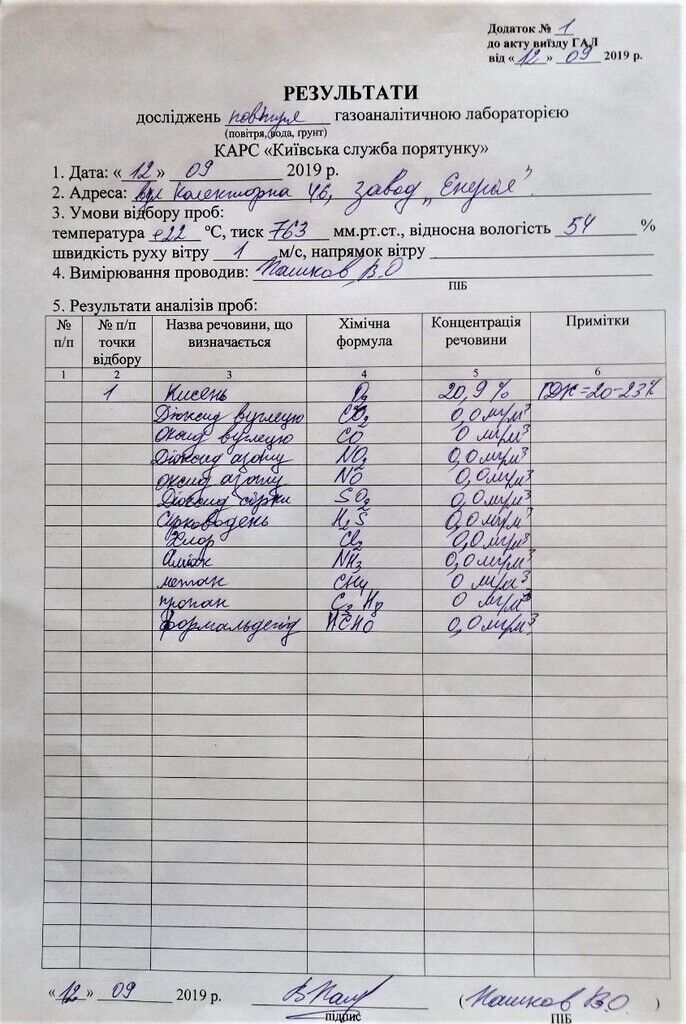 Додаток № 1
до акту виїзду ГАЛ
від «12» 09 2019 р.
РЕЗУЛЬТАТИ
досліджень повітря газоаналітичною лабораторією
(повітря, вода, грунт)
КАРС «Київська служба порятунку»
1. Дата: «12» 09 2019 р.
2. Адреса: вул Колекторна 46, завод „Енергія"
3. Умови відбору проб:
температура +22 °С, тиск 763 мм.рт.ст., відносна вологість 54 %
швидкість руху вітру 1 м/с, напрямок вітру
4. Вимірювання проводив: Пашков В.О
ПІБ
5. Результати аналізів проб:
№ п/п № п/п точки відбору Назва речовини, що визначається Хімічна формула Концентрація речовини Примітки
1 2 3 4 5 6
1 Кисень O₂ 20,9 % ГДК=20-23%
Діоксид вуглецю CO₂ 0,0 мг/м³
Оксид вуглецю CO 0 мг/м³
Діоксид азоту NO₂ 0,0 мг/м³
оксид азоту NO 0,0 мг/м³
Діоксид сірки SO₂ 0,0 мг/м³
Сірководень H₂S 0,0 мг/м³
Хлор Cl₂ 0,0 мг/м³
Аміак NH₃ 0,0 мг/м³
метан CH₄ 0 мг/м³
пропан C₃H₈ 0 мг/м³
формальдегід HCHO 0,0 мг/м³
«12» 09 2019 р. (Пашков В.О. )
підпис ПІБ